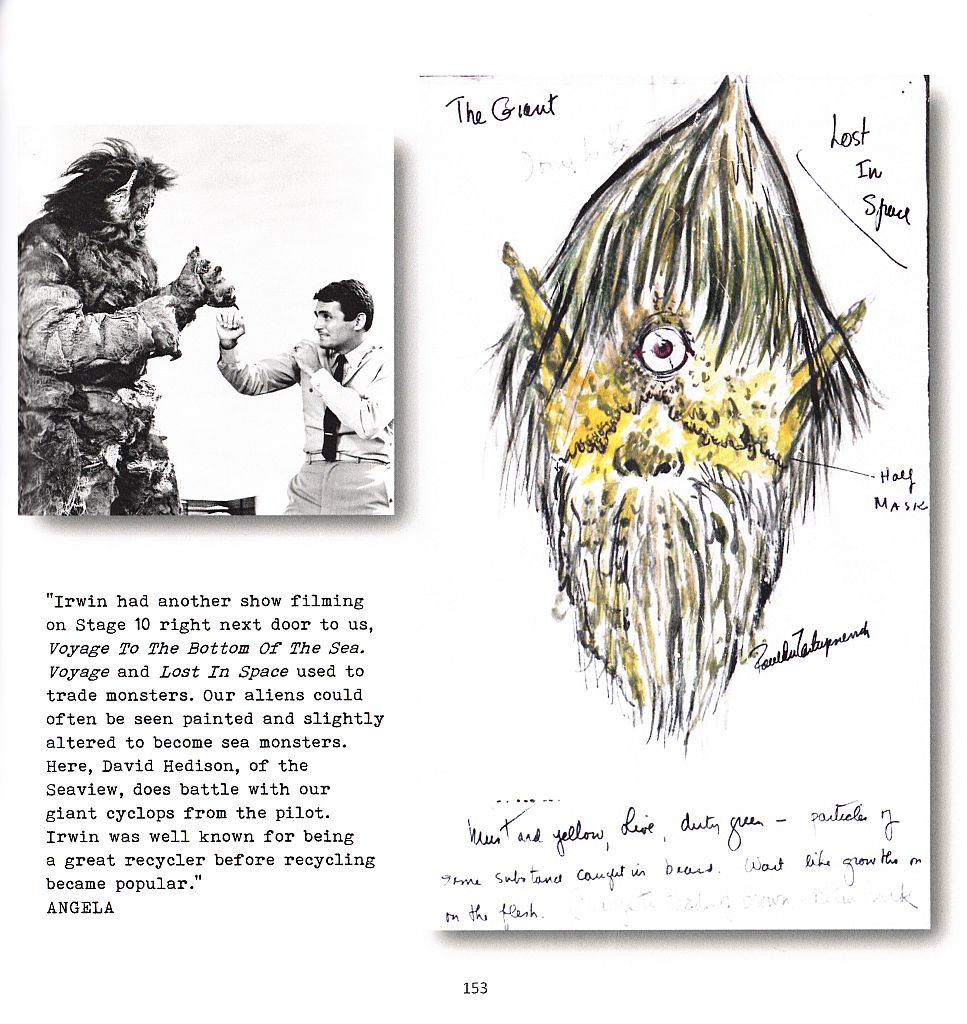 The Giant
Lost
In
Space
Half
MASK
"Irwin had another show filming
on Stage 10 right next door to us,
Voyage To The Bottom Of The Sea.
Voyage and Lost In Space used to
trade monsters. Our aliens could
often be seen painted and slightly
altered to become sea monsters.
Here, David Hedison, of the
Seaview, does battle with our
giant cyclops from the pilot.
Irwin was well known for being
a great recycler before recycling
became popular."
ANGELA
Mustard yellow, Olive, dirty green — particles of
some substance caught in beard. Wart like growths on
on the flesh.
153